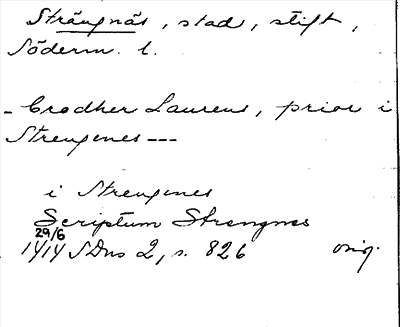 Strängnäs, stad, stift,
Söderm. l.
- Crodher Laurens, prior i
Strengenes ---
i Strengenes
Scriptum Strengnes
29/6
1414 SDns 2, s. 826 orig.